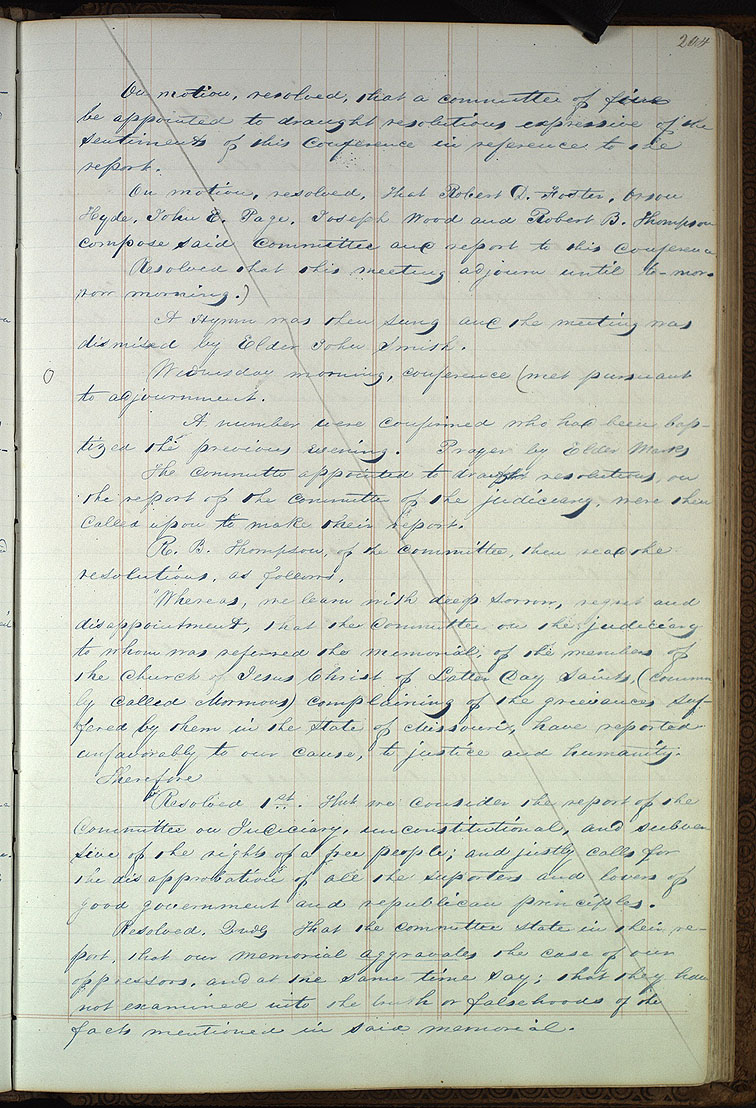 204
On motion, resolved, that a committee of five
be appointed to draught resolutions expressive of the
sentiments of this conference in reference to the
report.
On motion, resolved, that Robert D. Foster, Orson
Hyde, John E. Page, Joseph Wood and Robert B. Thompson
compose said committee and report to this conference
Resolved that this meeting adjourn until to-mor-
row morning.)
A Hymn was then sung and the meeting was
dismised by Elder John Smith.
Wednesday morning, conference (met pursuant
to adjournment.
A number were confirmed who had been bap-
tized the previous evening. Prayer by Elder Marks
The committe appointed to draught resolutions, on
the report of the committe of the judiciary, were then
called upon to make their report.
R. B. Thompson, of the committee, then read the
resolutions, as follows,
"Whereas, we learn with deep sorrow, regret and
disappointment, that the committee on the judiciary
to whom was referred the memorial, of the members of
the church of Jesus Christ of Latter Day Saints, (common
ly called Mormons) complaining of the grievances suf-
fered by them in the State of Missouri, have reported
unfavorably to our cause, to justice and humanity.
Therefore
Resolved 1st. That we consider the report of the
committee on Judiciary, unconstitutional, and subver
sive of the rights of a free people; and justly calls for
the disapprobation of all the suporters and lovers of
good government and republican principles.
Resolved. 2ndly That the committee state in their re-
port, that our memorial aggravates the case of our
oppressors, and at the same time say; that they have
not examined into the truth or falsehoods of the
facts mentioned in said memorial.